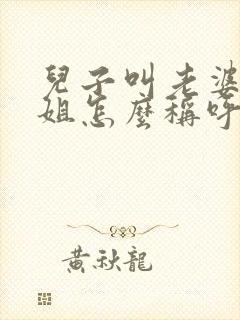 兒子叫老婆
姐怎麼稱呼
黃秋龍